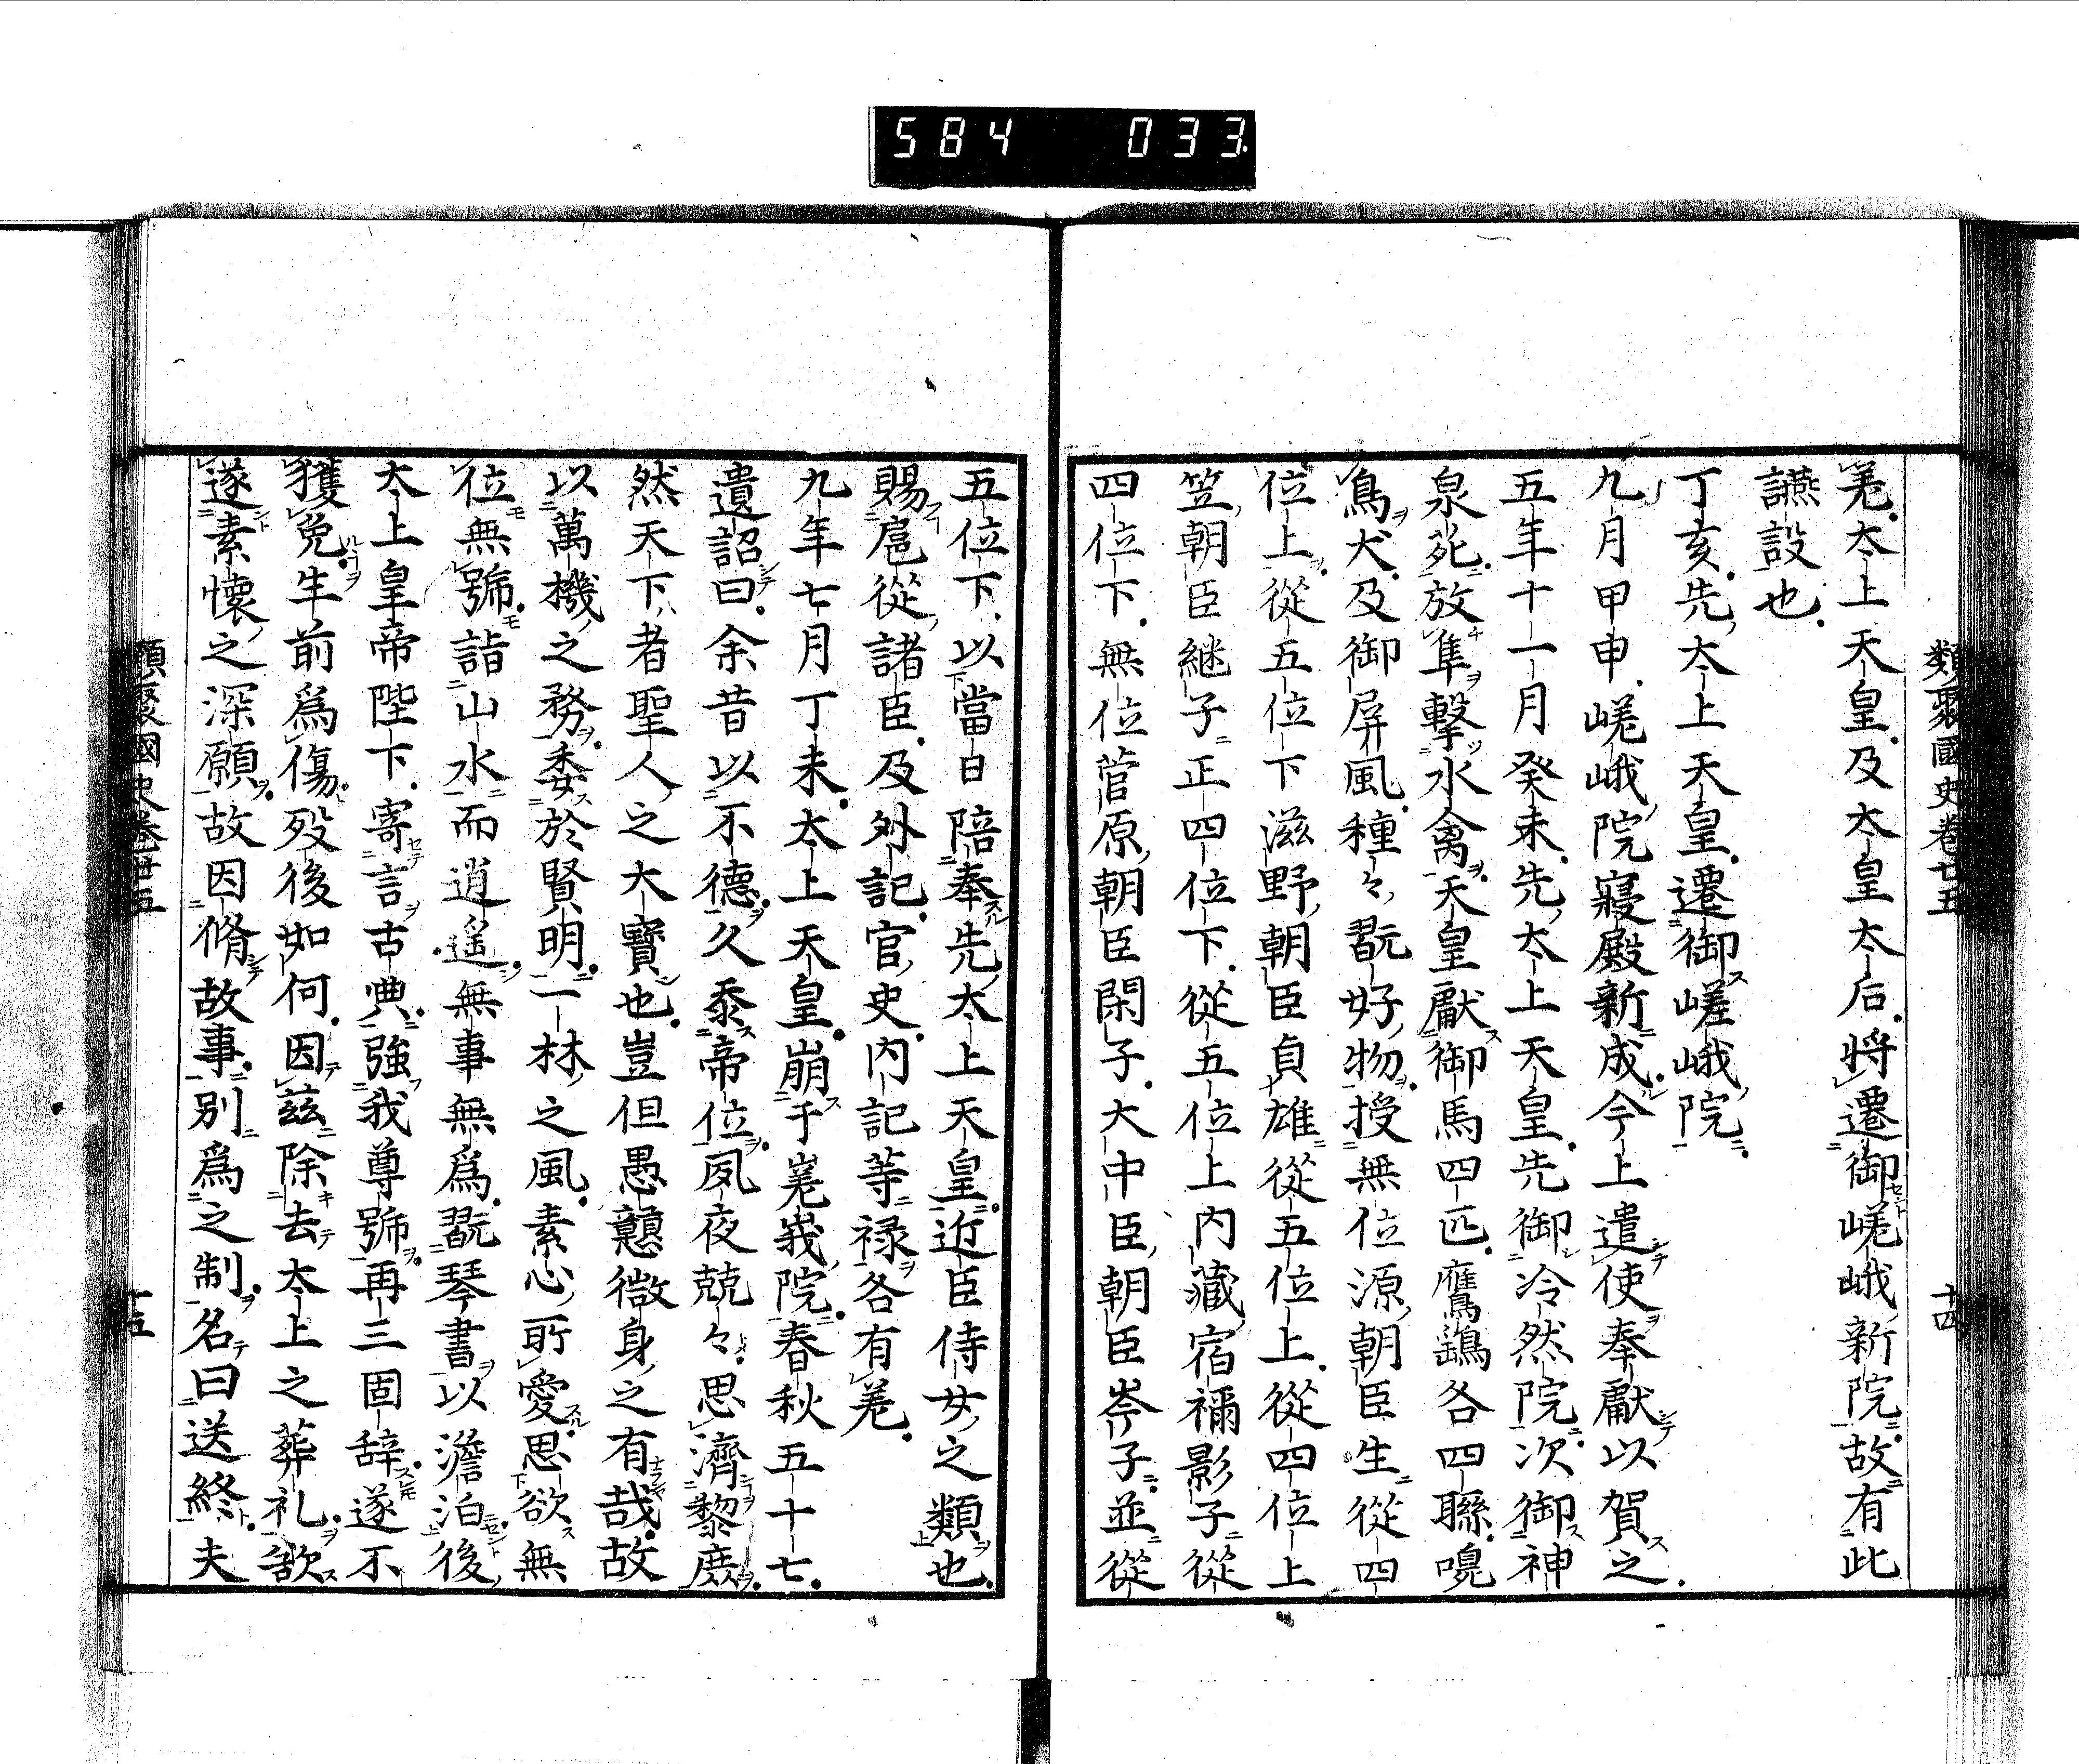 584 033
類聚國史卷廿五 十四
差太上天皇及太皇太后將遷御嵯峨新院故有此
讌設也
丁亥先太上天皇遷御嵯峨院
九月甲申嵯峨院寢殿新成今上遣使奉獻以賀之
五年十一月癸未先太上天皇先御冷然院次御神
泉苑放隼擊水禽天皇獻御馬四匹鷹鷂各四聯嗅
鳥犬及御屏風種々翫好物授無位源朝臣生從四
位上從五位下滋野朝臣貞雄從五位上從四位上
笠朝臣継子正四位下從五位上内藏宿禰影子從
四位下無位菅原朝臣閑子大中臣朝臣岑子並從
五位下以當日陪奉先太上天皇近臣侍女之類也
賜扈從諸臣及外記官史内記等禄各有差
九年七月丁未太上天皇崩于嵳峩院春秋五十七
遺詔曰余昔以不德久忝帝位夙夜兢々思濟黎庶
然天下者聖人之大寳也豈但愚戇微身之有哉故
以萬機之務委於賢明一林之風素心所愛思欲無
位無號詣山水而逍遙無事無爲翫琴書以澹泊後
太上皇帝陛下寄言古典強我尊號再三固辞遂不
獲免生前爲傷殁後如何因茲除去太上之葬礼欲
遂素懷之深願故因脩故事別爲之制名曰送終夫
類聚國史卷廿五 十五